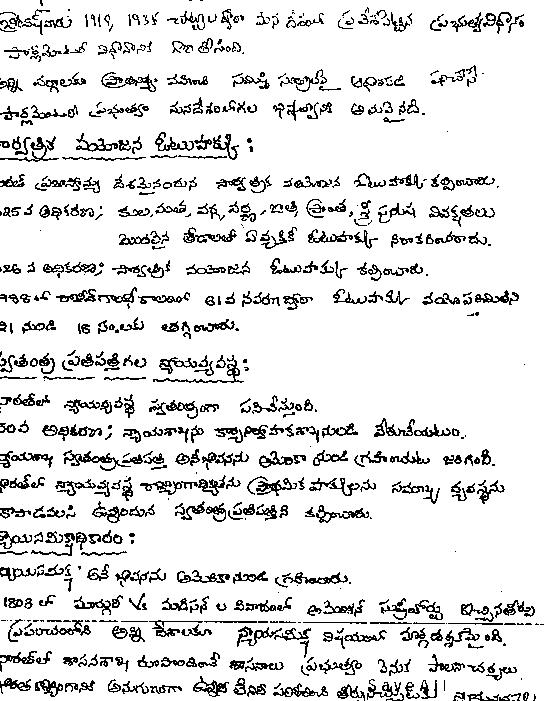 బ్రిటిష్‌వారు 1919, 1935 చట్టాల ద్వారా మన దేశంలో ప్రవేశపెట్టిన ప్రభుత్వవిధానం
పార్లమెంటరీ విధానానికి దారి తీసింది.
అన్ని వర్గాలకు ప్రాతినిధ్యం వహించి సమిష్టి
పార్లమెంటరీ ప్రభుత్వం మనదేశంలోగల భిన్నత్వానికి అనువైనది.
సార్వత్రిక వయోజన ఓటుహక్కు :
భారత్ ప్రజాస్వామ్య దేశమైనందున సార్వత్రిక వయోజన ఓటుహక్కు కల్పించారు.
325వ అధికరణ; కుల, మత, వర్గ, వర్ణ, జాతి ప్రాంత, స్త్రీ పురుష వివక్షతలు
మొదలైన తేడాలతో ఏ వ్యక్తికీ ఓటుహక్కు నిరాకరించరాదు.
326 వ అధికరణ; సార్వత్రిక వయోజన ఓటుహక్కు కల్పించారు.
1988లో రాజీవ్‌గాంధీ కాలంలో 61వ సవరణ ద్వారా ఓటుహక్కు వయోపరిమితిని
21 నుండి 18 సం.లకు తగ్గించారు.
స్వతంత్ర ప్రతిపత్తిగల న్యాయవ్యవస్థ :
భారత్‌లో న్యాయవ్యవస్థ స్వతంత్రంగా పనిచేస్తుంది.
50వ అధికరణ; న్యాయశాఖను కార్యనిర్వాహకశాఖనుండి వేరుచేయటం.
న్యాయశాఖ స్వతంత్రప్రతిపత్తి అనే భావనను అమెరికా నుండి గ్రహించుట జరిగింది.
భారత్‌లో న్యాయవ్యవస్థ రాజ్యాంగాధిక్యతను ప్రాథమిక హక్కులను సమాఖ్య వ్యవస్థను
కాపాడవలసి ఉన్నందున స్వతంత్రప్రతిపత్తిని కల్పించారు.
న్యాయసమీక్షాధికారం :
న్యాయసమీక్ష అనే భావనను అమెరికా నుండి గ్రహించారు.
1803 లో మార్బురీ Vs మాడిసన్ ల వివాదంలో అమెరికన్ సుప్రీంకోర్టు ఇచ్చిన తీర్పు
ప్రపంచంలోని అన్ని దేశాలకు న్యాయసమీక్ష విషయంలో మార్గదర్శకమైంది.
భారత్‌లో శాసనశాఖ రూపొందించే శాసనాలు ప్రభుత్వం చేసే పాలనాచర్యలు
భారత రాజ్యాంగానికి అనుగుణంగా ఉన్నవో లేదో పరిశీలించి